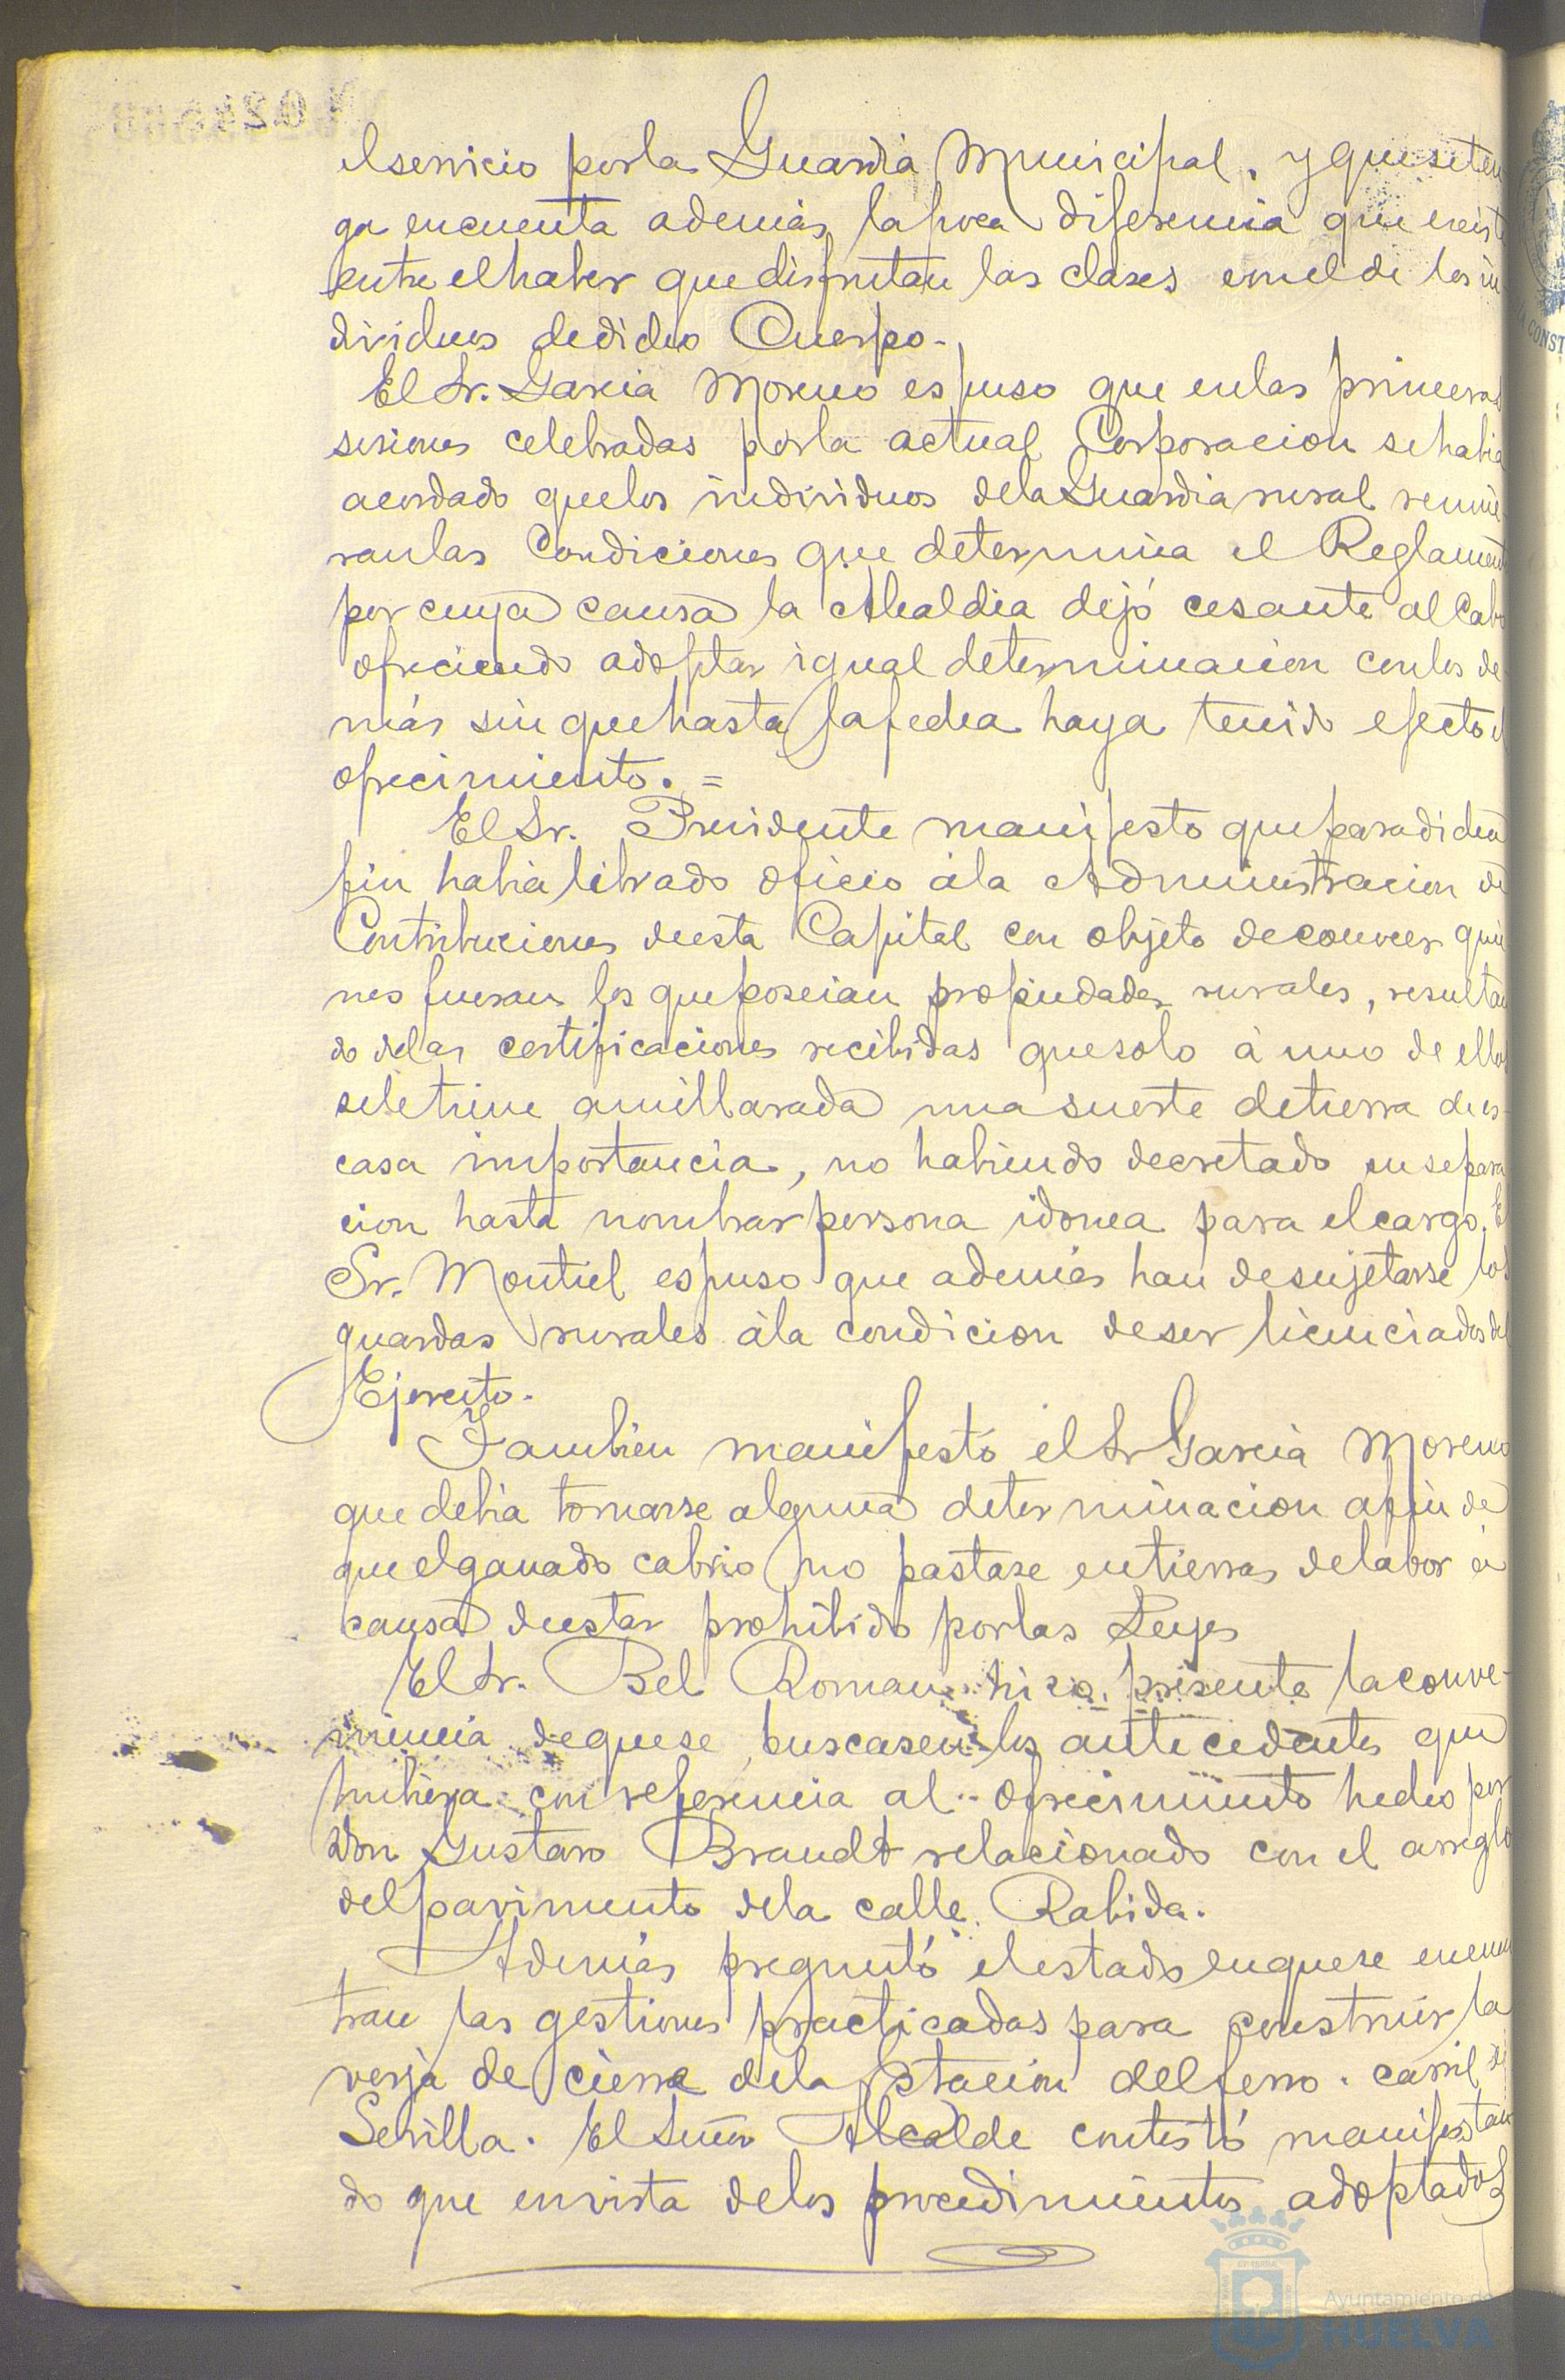 el servicio por la Guardia Municipal, y que se ten
ga en cuenta además la poca diferencia que exist
entre el haber que disfrutan las clases con el de los in
dividuos de dicho Cuerpo.
El Sr. Garcia Moreno espuso que en las primeras
sesiones celebradas por la actual Corporacion se habia
acordado que los individuos de la Guardia rural reunie
ran las condiciones que determina el Reglament
por cuya causa la Alcaldia dejó cesante al Cabo
ofreciendo adoptar igual determinacion con los de
más sin que hasta la fecha haya tenido efecto el
ofrecimiento. =
El Sr. Presidente manifesto que para dicho
fin habia librado oficio á la Administracion de
Contribuciones de esta Capital con objeto de conocer quie
nes fueran los que poseian propiedades rurales, resultan
do de las certificaciones recibidas que solo á uno de ellos
se le tiene amillarada una suerte de tierra de es-
casa importancia, no habiendo decretado su separa
cion hasta nombrar persona idonea para el cargo. El
Sr. Montiel espuso que además han de sujetarse los
guardas rurales á la condicion de ser licenciados del
Ejercito.
Tambien manifestó el Sr Garcia Moreno
que debia tomarse alguna determinacion a fin de
que el ganado cabrio no pastase en tierras de labor á
causa de estar prohibido por las Leyes
El Sr. Bel Roman hizo presente la conve-
niencia de que se buscasen los antecedentes que
hubiera con referencia al ofrecimiento hecho por
Don Gustavo Brandt relacionado con el arreglo
del pavimento de la calle Rabida.
Además preguntó el estado en que se encuen
tran las gestiones practicadas para construir la
verja de cierre de la Estacion del ferro-carril de
Sevilla. El Señor Alcalde contestó manifestan
do que en vista de los procedimientos adoptados
CONST
Ayuntamiento de
HUELVA